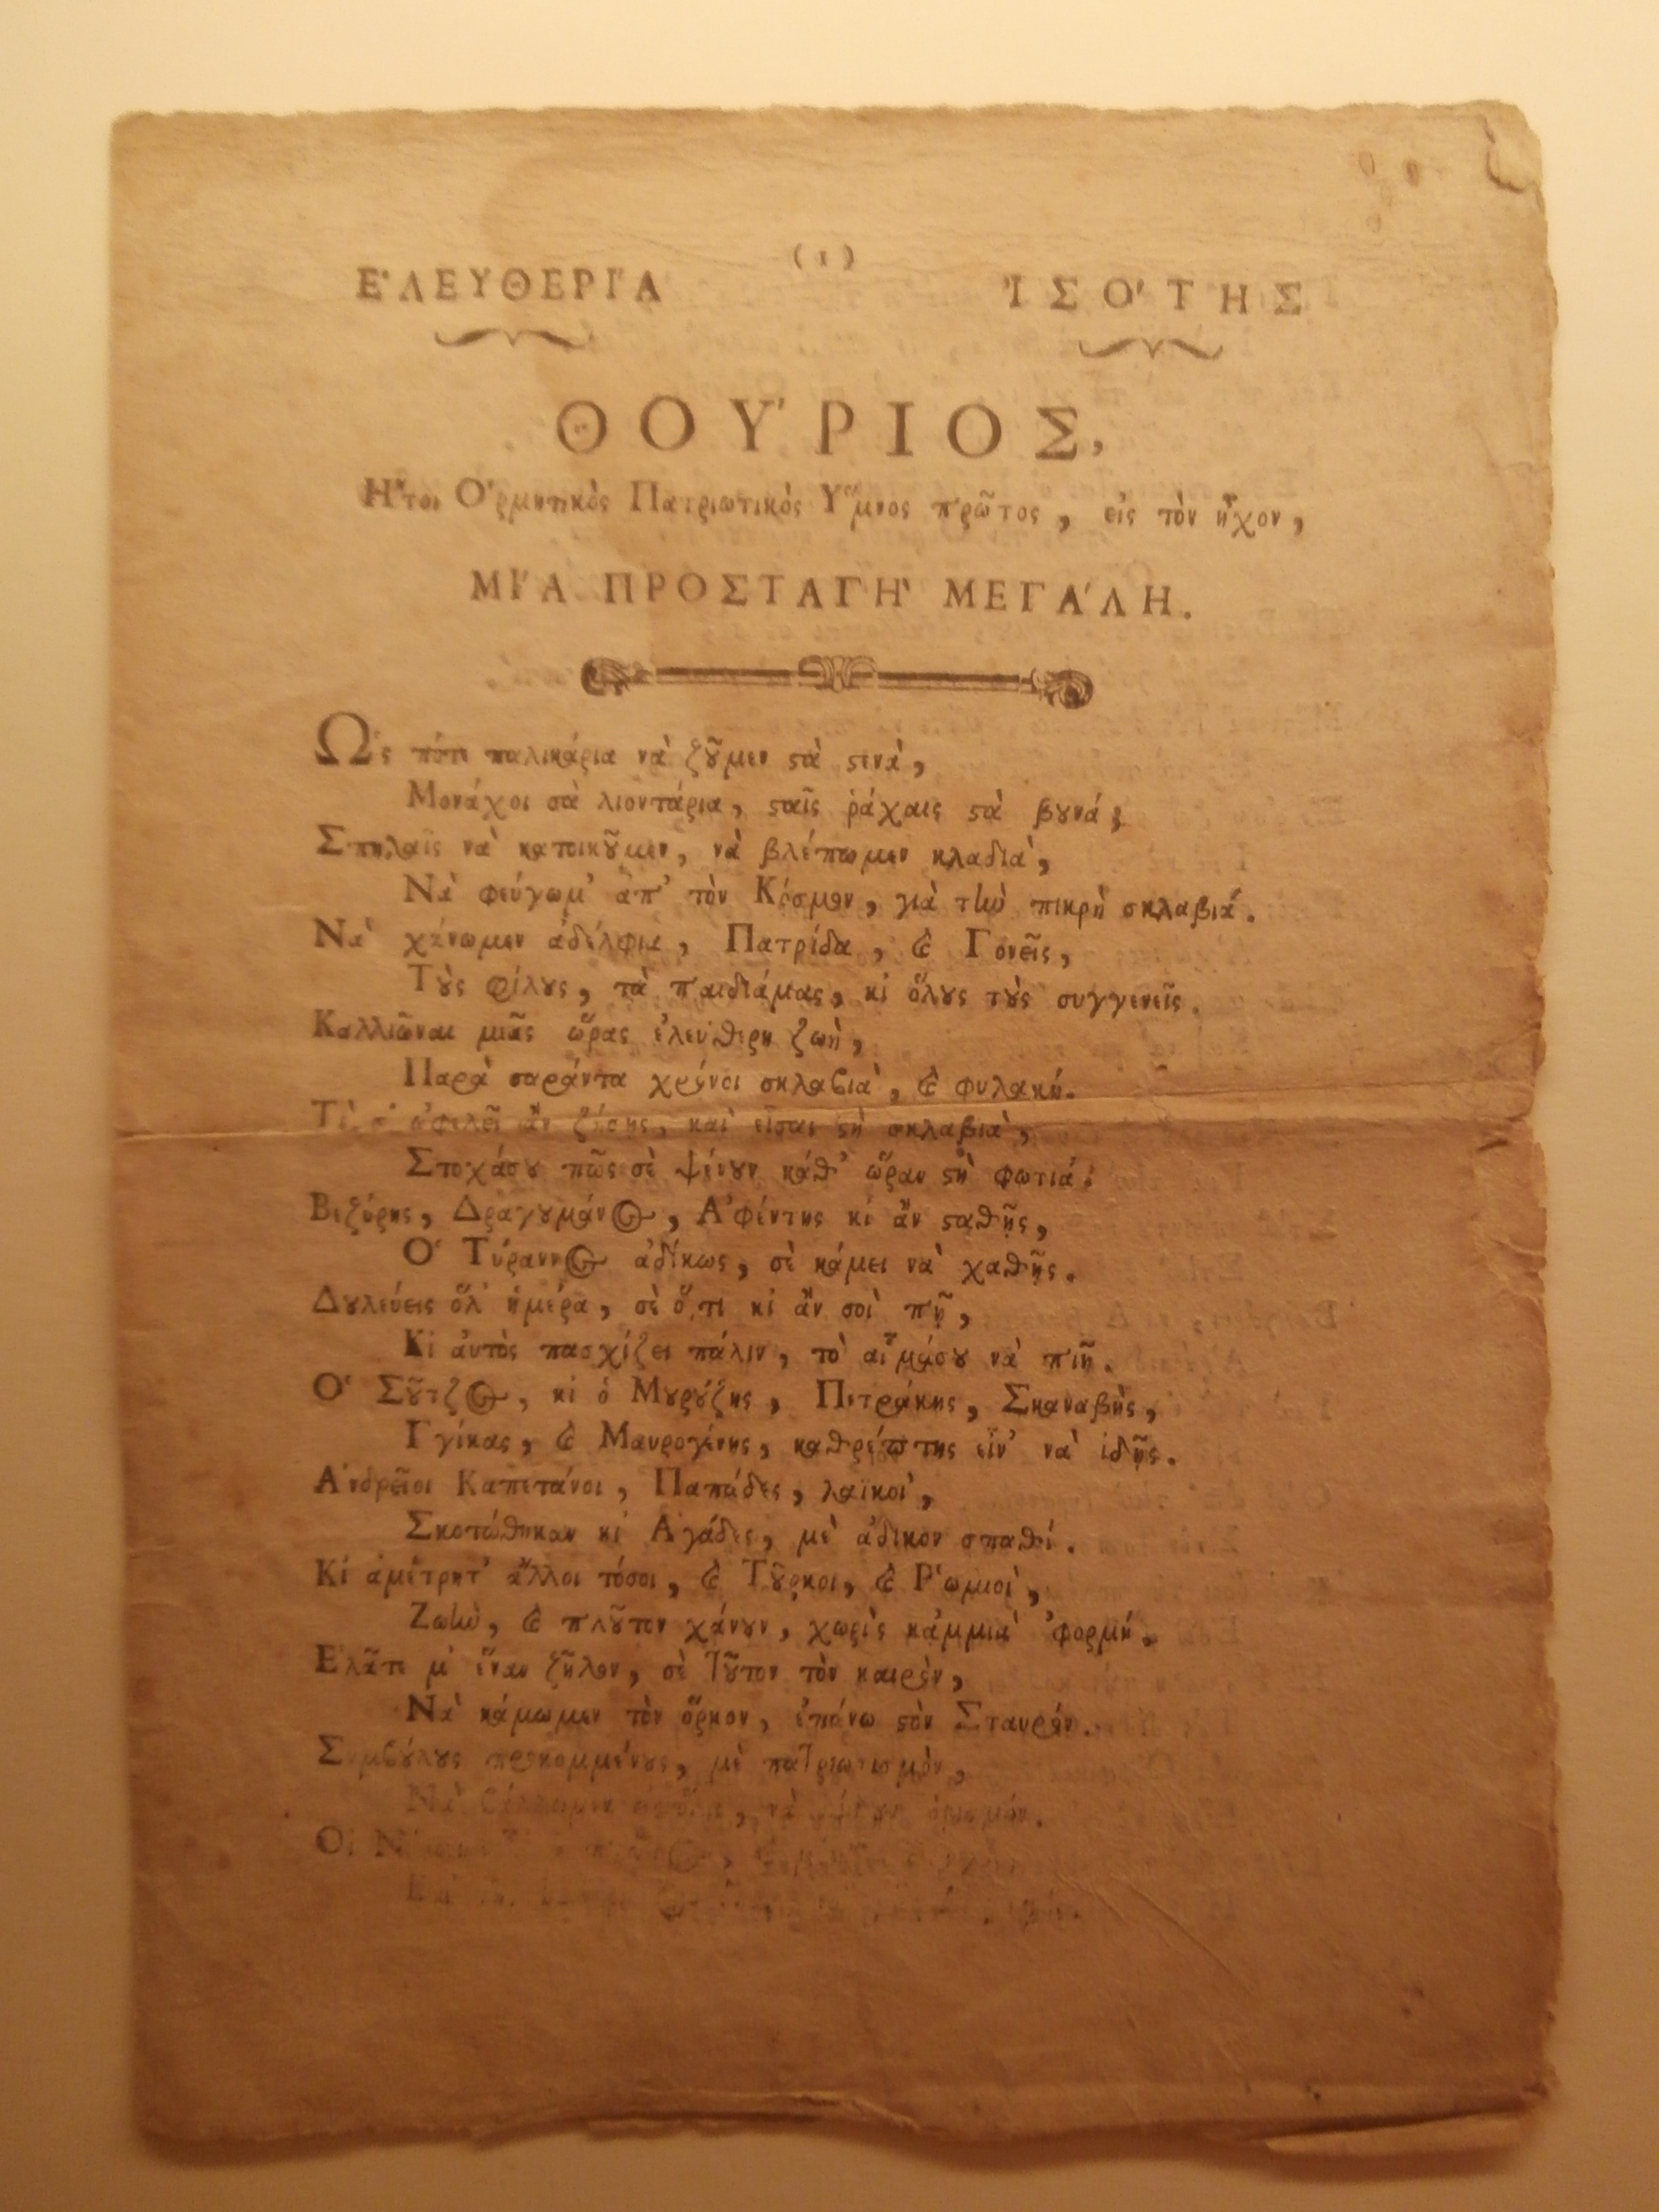 (1)
ἘΛΕΥΘΕΡΊΑ ἸΣΌΤΗΣ
ΘΟΎΡΙΟΣ,
Ἤτοι Ὁρμητικὸς Πατριωτικὸς Ὕμνος πρῶτος, εἰς τὸν ἦχον,
ΜΊΑ ΠΡΟΣΤΑΓῊ ΜΕΓΆΛΗ.
Ὡς πότε παλικάρια νὰ ζȣ͂μεν ϛὰ ϛενὰ,
Μονάχοι σὰ λιοντάρια, ϛαῖς ῥάχαις ϛὰ βȣνά;
Σπηλαῖς νὰ κατοικȣ͂μεν, νὰ βλέπωμεν κλαδιὰ,
Νὰ φεύγωμ' ἀπ' τὸν Κόσμον, γιὰ τὴν πικρὴ σκλαβιά.
Νὰ χάνωμεν ἀδέλφια, Πατρίδα, ϗ Γονεῖς,
Τȣ̀ς φίλȣς, τὰ παιδιάμας, κι ὅλȣς τȣ̀ς συγγενεῖς.
Καλλιῶναι μιᾶς ὥρας ἐλεύθερη ζωὴ,
Παρὰ σαράντα χρόνοι σκλαβιὰ, ϗ φυλακή.
Τί σ' ὠφελεῖ ἂν ζήσῃς, καὶ εἶσαι ϛὴ σκλαβιὰ,
Στοχάσȣ πῶς σὲ ψένȣν κάθ' ὥραν ϛὴ φωτιά;
Βεζύρης, Δραγȣμάνος, Ἀφέντης κι ἂν ϛαθῇς,
Ὁ Τύραννος ἀδίκως, σὲ κάμει νὰ χαθῇς.
Δȣλεύεις ὅλ' ἡμέρα, σὲ ὅ,τι κι ἂν σοὶ πῇ,
Κι αὐτὸς πασχίζει πάλιν, τὸ αἷμάσȣ νὰ πιῇ.
Ὁ Σȣ͂τζος, κι ὁ Μȣρȣ́ζης, Πετράκης, Σκαναβὴς,
Γγίκας, ϗ Μαυρογένης, καθρέπτης εἶν' νὰ ἰδῇς.
Ἀνδρεῖοι Καπετάνοι, Παπάδες, λαϊκοὶ,
Σκοτώθηκαν κι Ἀγάδες, μὲ ἄδικον σπαθί.
Κι ἀμέτρητ' ἄλλοι τόσοι, ϗ Τȣ͂ρκοι, ϗ Ῥωμιοὶ,
Ζωὴν, ϗ πλȣ͂τον χάνȣν, χωρὶς κἀμμιὰ 'φορμή.
Ἐλᾶτε μ' ἕναν ζῆλον, σὲ τȣ͂τον τὸν καιρὸν,
Νὰ κάμωμεν τὸν ὅρκον, ἐπάνω ϛὸν Σταυρόν.
Συμβȣ́λȣς προκομμένȣς, μὲ πατριωτισμὸν,
Νὰ βάλλωμεν νὰ ὁρισμόν.
Οἱ